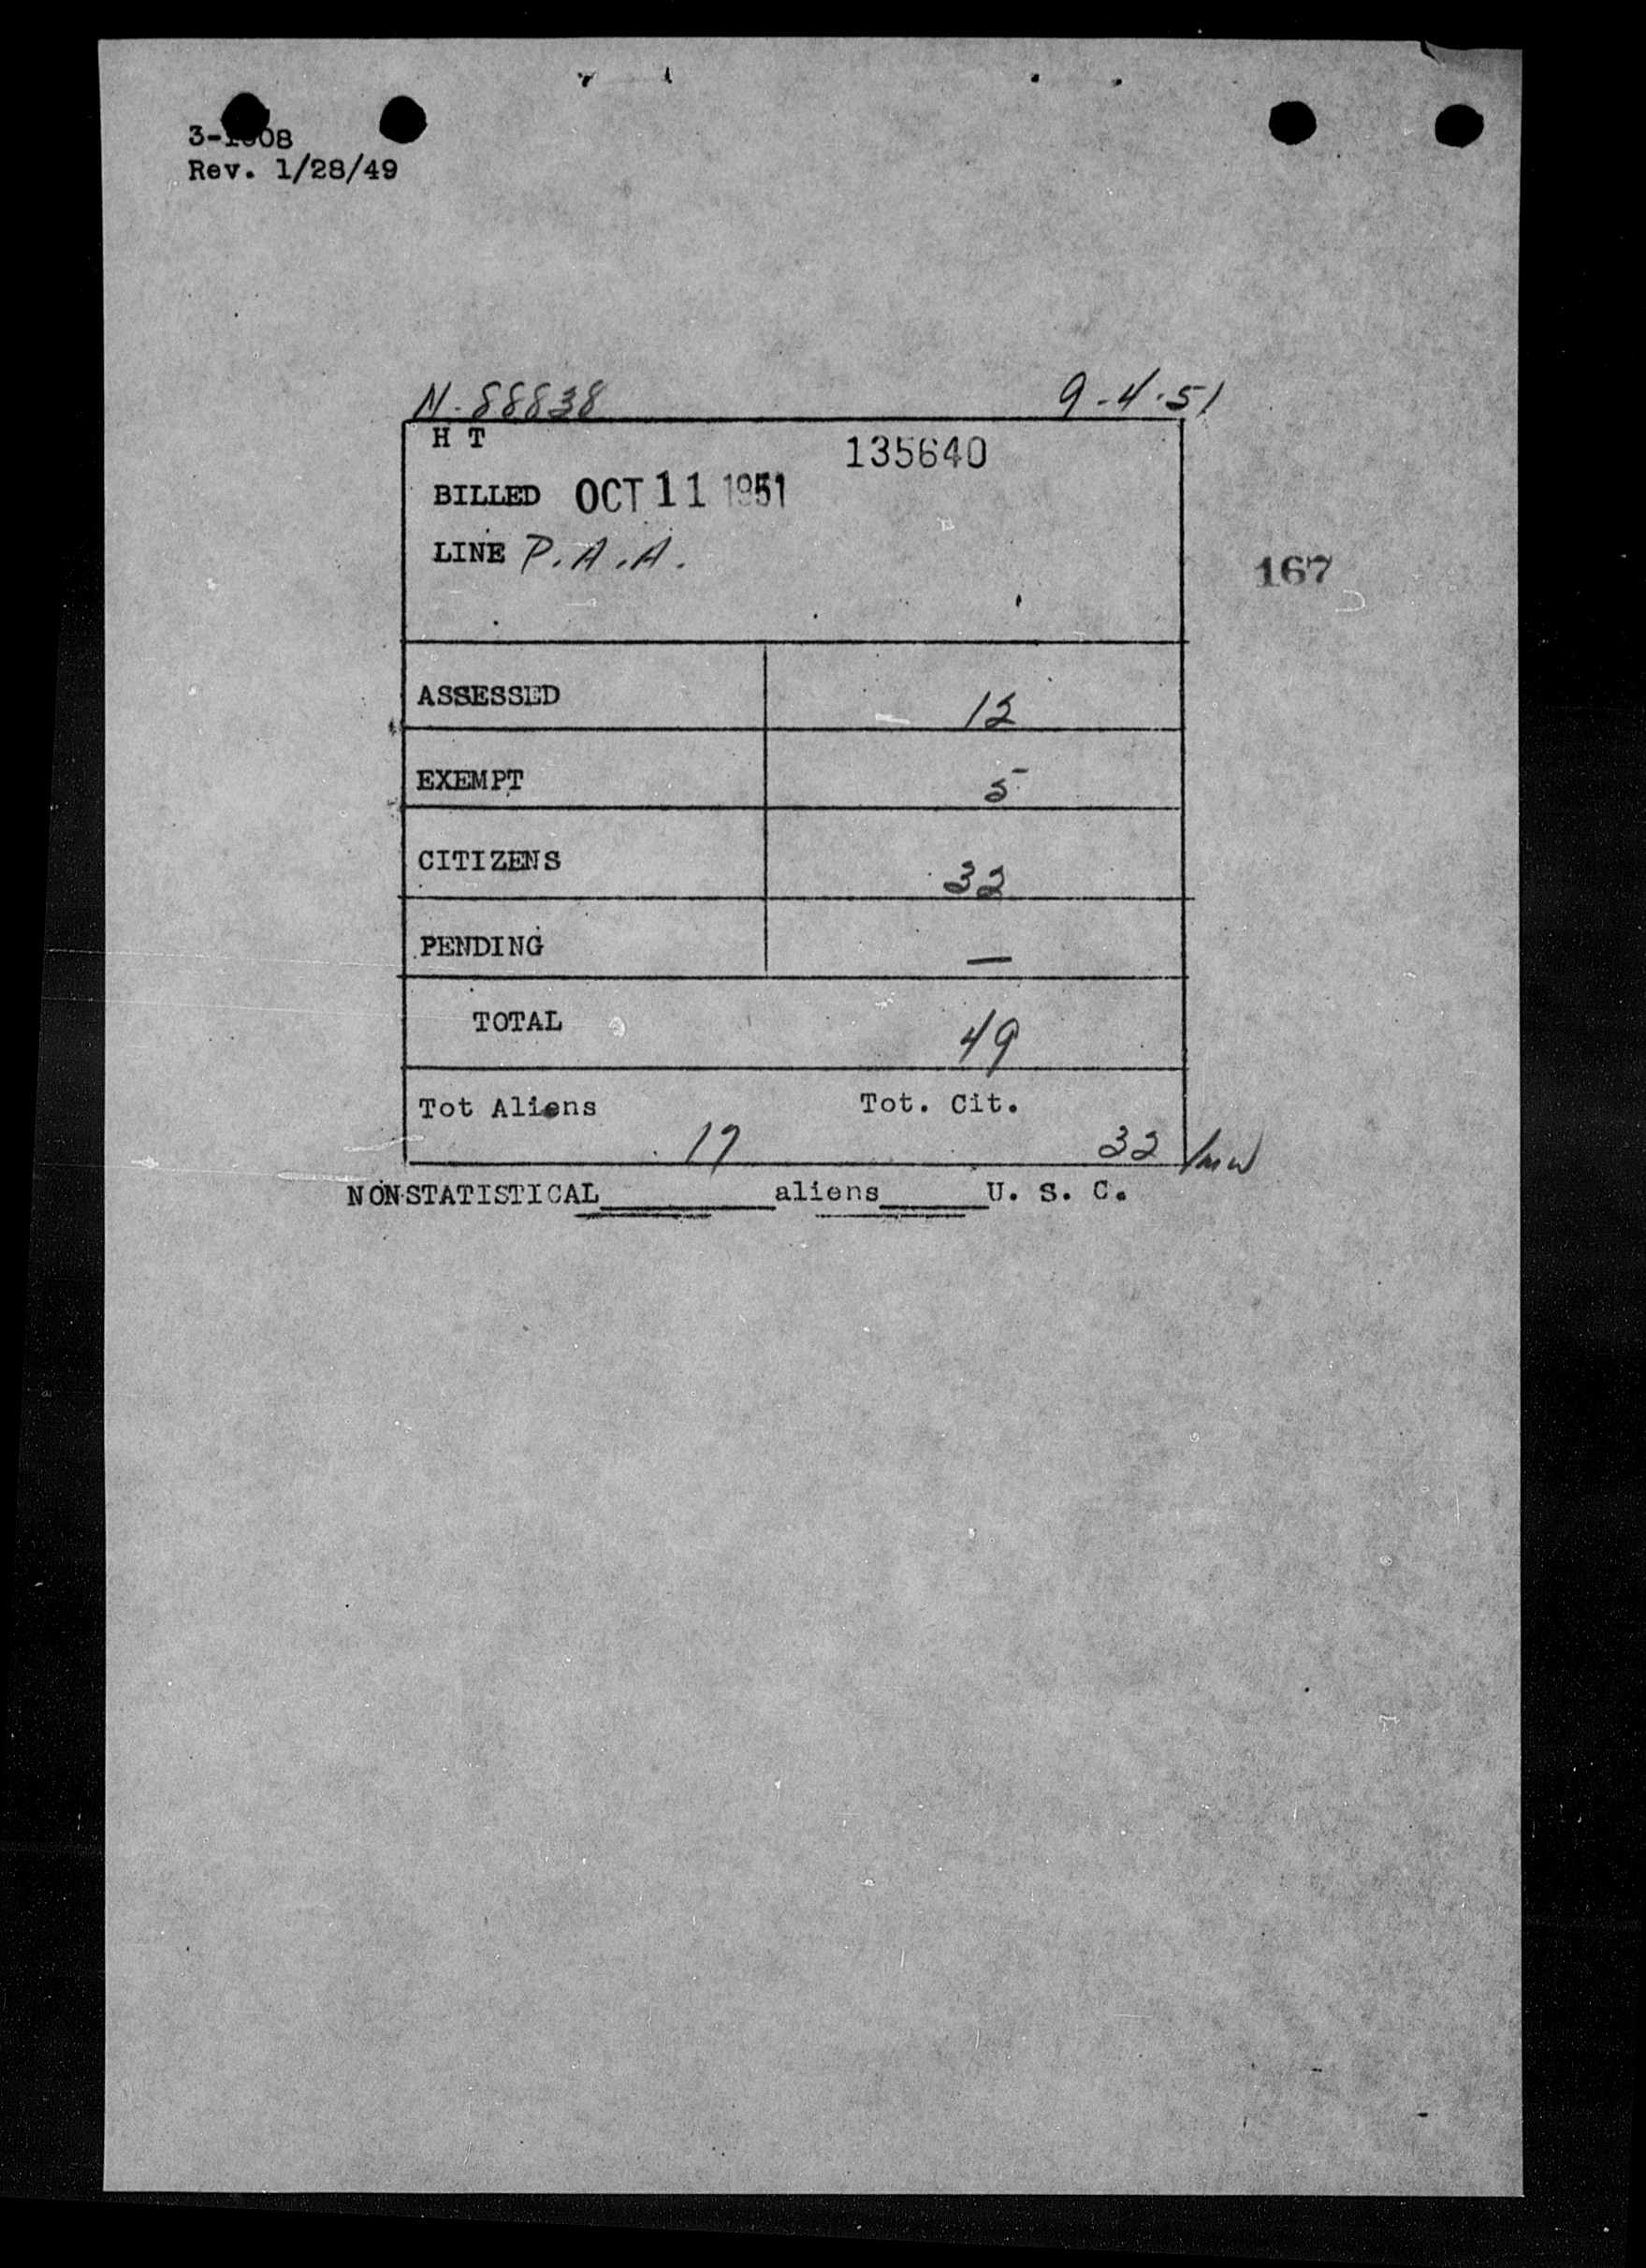 Rev. 1/28/49
N-88838 9-4-51
H T 135640
BILLED OCT 11 1951
LINE P.A.A.
167
ASSESSED 12
EXEMPT 5
CITIZENS 32
PENDING —
TOTAL 49
Tot Aliens Tot. Cit.
17 32 /mw
NON-STATISTICAL________aliens_____U. S. C.